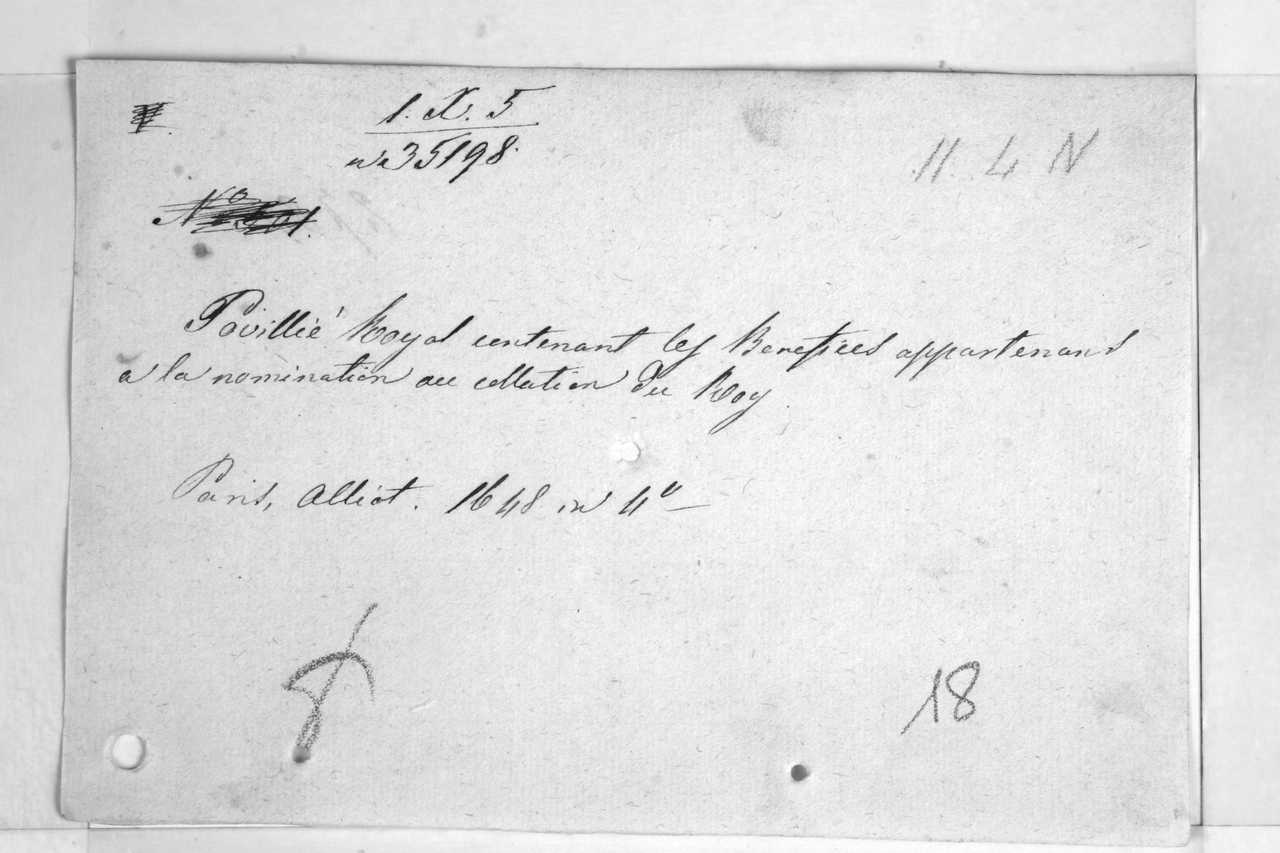 1. X. 5
35198.
11. 4 N
Povillié Royal contenant les Benefices appartenans
a la nomination ou collation du Roy
Paris, Alliot. 1648 in 4º
18